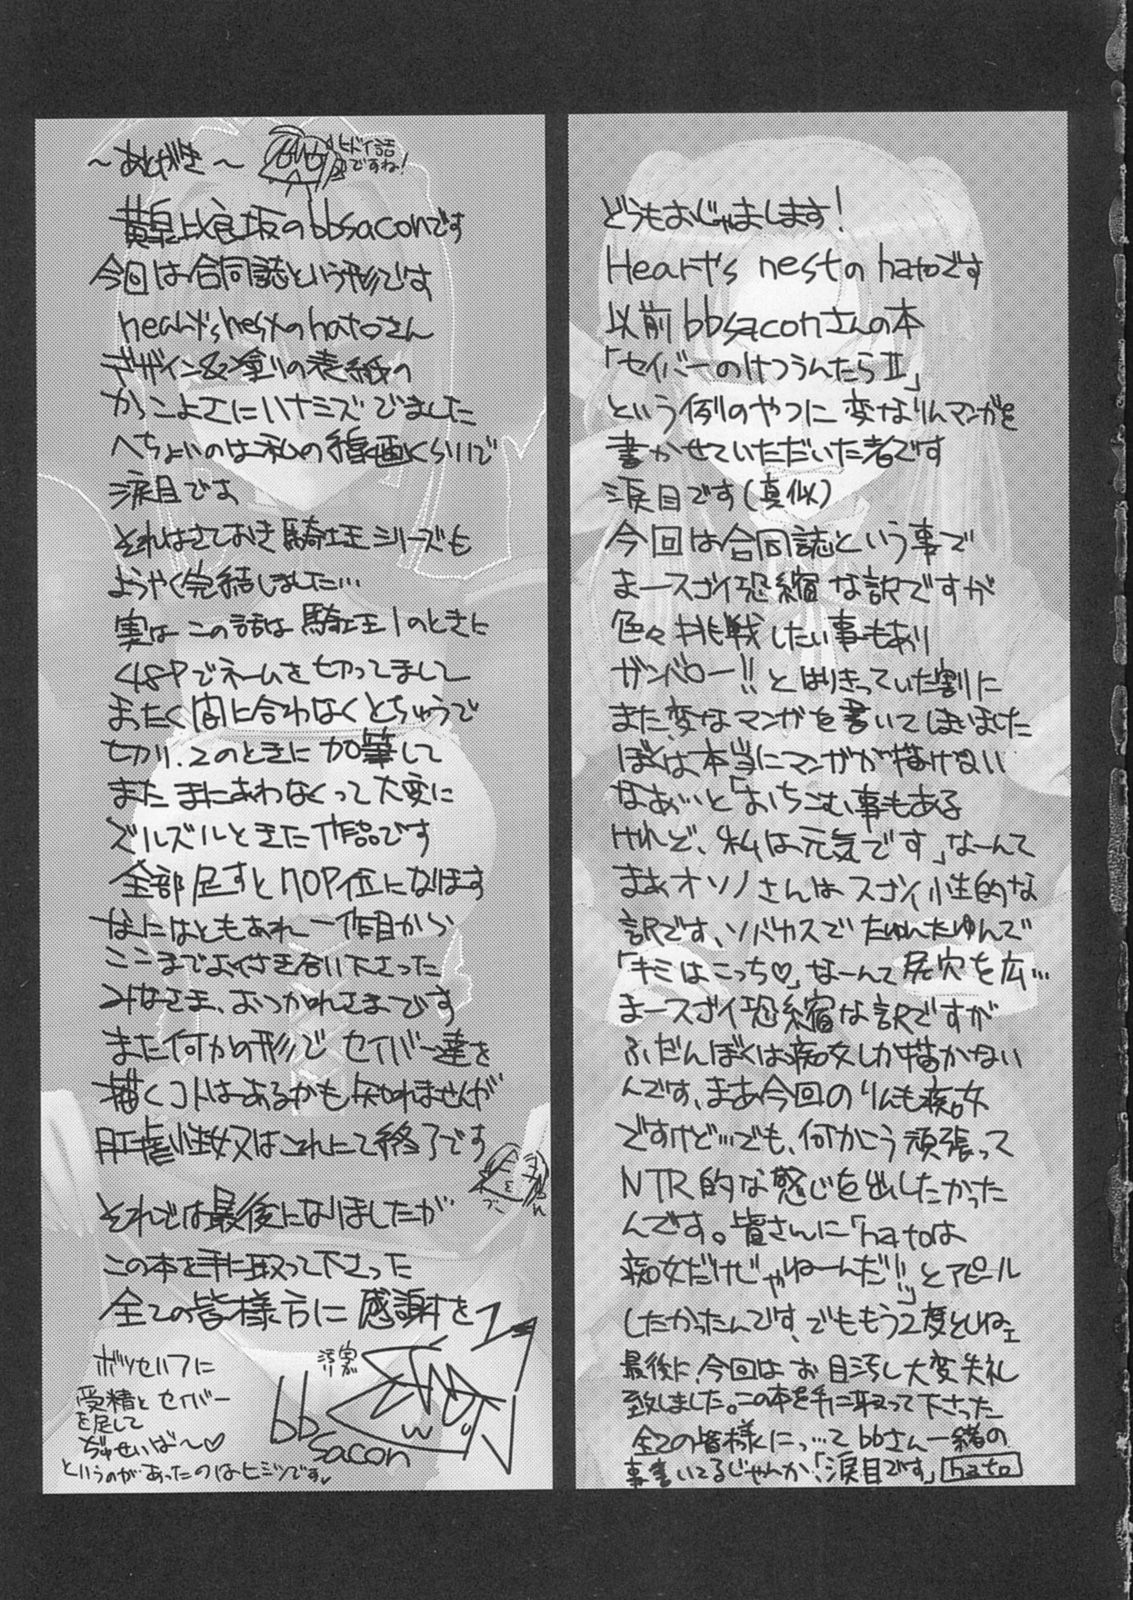 ～あとがき～
ヒドイ話
ですね!
黄泉比良坂のbbsaconです
今回は合同誌という形です
heart's nestのhatoさん
デザイン&塗りの表紙の
かっこよさにハナミズでました
へちょいのは私の線画くらいで
涙目です
それはさておき騎士王シリーズも
ようやく完結しました…
実はこの話は騎士王1のときに
48Pでネームを切ってまして
まったく間に合わなくとちゅうで
切り、2のときに加筆して
またまにあわなくって大変に
ズルズルときた作品です
全部足すと110P位になります
なにはともあれ一作目から
ここまでよく付き合い下さった
みなさま、おつかれさまです
また何かの形でセイバー達を
描くコトはあるかも知れませんが
肛虐性奴又はこれにて終了です
それでは最後になりましたが
この本を手に取って下さった
全ての皆様方に感謝を
bb
sacon
ボツセリフに
受精とセイバー
を足して
ぢゅせいば～♡
というのがあったのはヒミツです
どうもおじゃまします!
Heart's nestのhatoです
以前bbsaconさんの本
「セイバーのけつうんたらⅡ」
という例のやつに変なりんマンガを
書かせていただいた者です
涙目です(真似)
今回は合同誌という事で
まースゴイ恐縮な訳ですが
色々挑戦したい事もあり
ガンベロー!!とはりきっていた割に
また変なマンガを書いてしまいました
ぼくは本当にマンガが描けない
なあぃと「おちこむ事もある
けれど、私は元気です」なーんて
まあオソノさんはスゴイ性的な
訳です、ソバカスでたゆんたゆんで
「キミはこっち♡」なーんて尻穴を広…
まースゴイ恐縮な訳ですが
ふだんぼくは痴女しか描かない
んです、まあ今回のりんも痴女
ですけど…でも、何かこう頑張って
NTR的な感じを出したかった
んです。皆さんに「hatoは
痴女だけじゃねーんだ!!」とアピール
したかったんです、でももう2度としねェ
最後に、今回はお目汚し大変失礼
致しました。この本を手に取って下さった
全ての皆様に…ってbbさんと一緒の
事書いてるじゃんか、「涙目です」hato